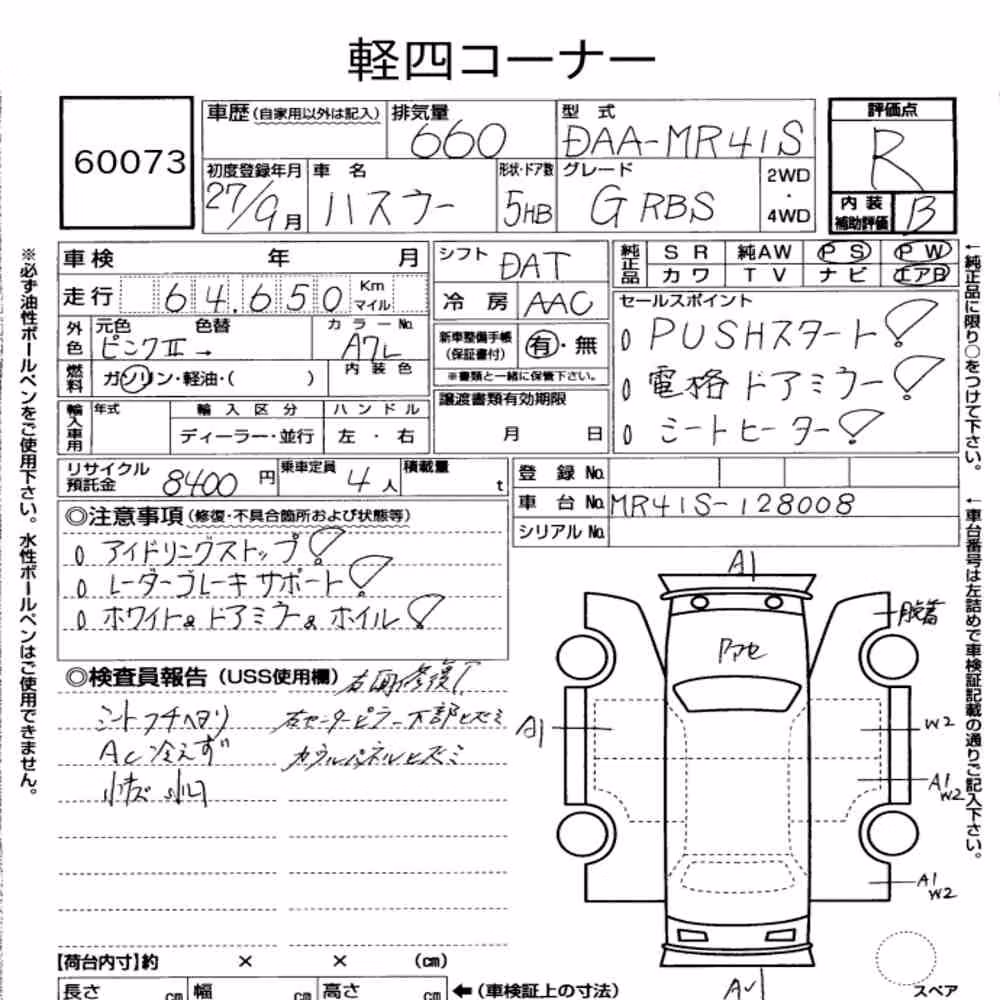 軽四コーナー
60073
車歴(自家用以外は記入)
排気量 660
型式 DAA-MR41S
評価点 R
初度登録年月 27/9月
車名 ハスラー
形状・ドア数 5HB
グレード G RBS
2WD・4WD
内装補助評価 B
車検 年 月
シフト DAT
純正品 SR 純AW PS PW
カワ TV ナビ エアB
走行 64,650 Km マイル
冷房 AAC
セールスポイント
PUSHスタート!
電格ドアミラー!
シートヒーター!
外色 元色 ピンクⅡ→ 色替
カラーNo. A7L
内装色
新車整備手帳(保証書付) 有・無
※書類と一緒に保管下さい。
燃料 ガソリン・軽油・( )
譲渡書類有効期限
月 日
輸入車用 年式 輸入区分 ハンドル
ディーラー・並行 左・右
リサイクル預託金 8400円
乗車定員 4人
積載量 t
登録No.
車台No. MR41S-128008
シリアルNo.
◎注意事項(修復・不具合箇所および状態等)
アイドリングストップ!
レーダーブレーキサポート!
ホワイト&ドアミラー&ホイル!
◎検査員報告(USS使用欄) 右面修復
シートフチヘタリ
右センターピラー下部ヒズミ
AC冷えず
カウルパネルヒズミ
小キズ 小凹
A1
脱着
Fアセ
A1
W2
A1
W2
A1
W2
【荷台内寸】約 × × (cm)
長さ cm 幅 cm 高さ cm ←(車検証上の寸法)
スペア
※必ず油性ボールペンをご使用下さい。水性ボールペンはご使用できません。
←純正品に限り○をつけて下さい。
←車台番号は左詰めで車検証記載の通りご記入下さい。